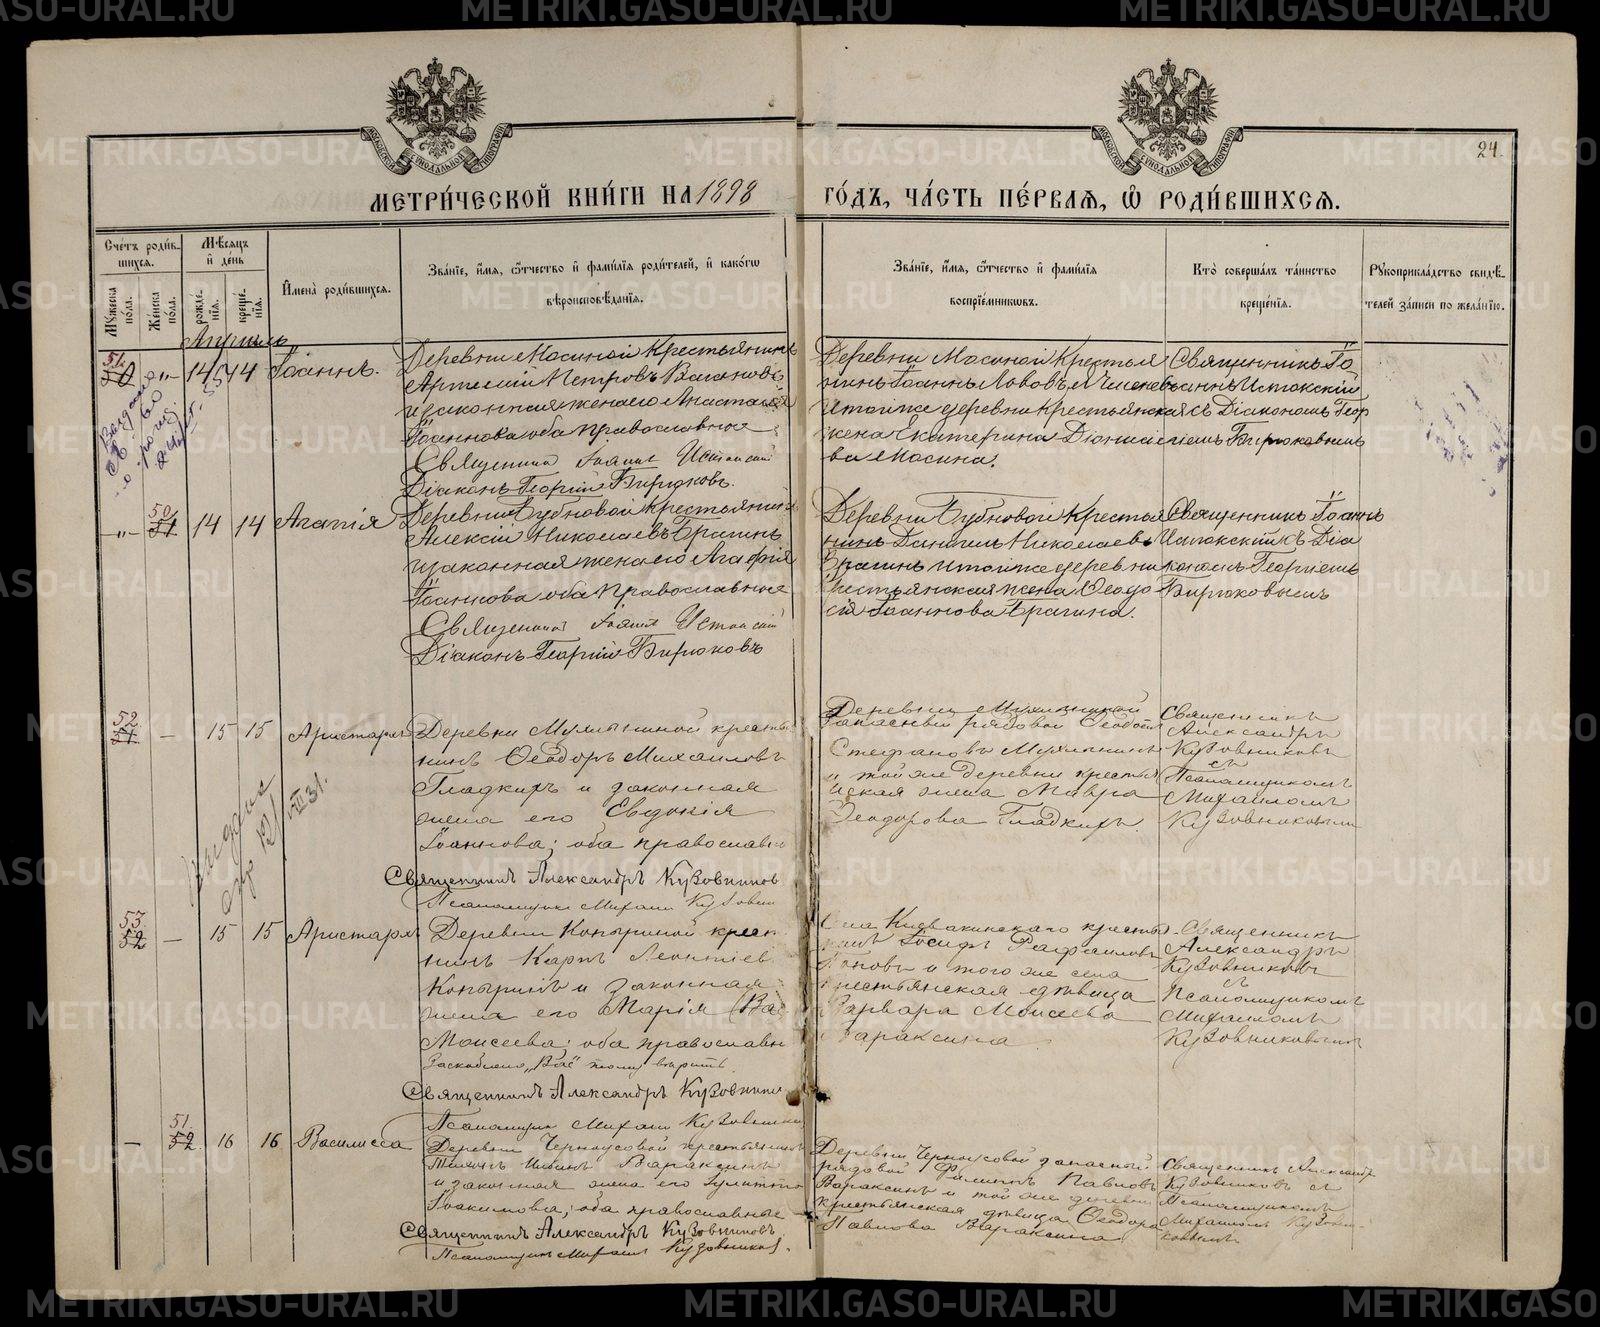 24.
МЕТРИ́ЧЕСКОЙ КНИ́ГИ НА 1898
ГО́ДЪ, ЧА́СТЬ ПЕ́РВАЯ, Ѽ РОДИ́ВШИХСЯ.
Сче́тъ роди́в-
шихся.
Мѣ́сяцъ
и҆ де́нь
Мꙋ́жеска по́ла.
Же́нска по́ла.
рожде́-
нїѧ.
креще́-
нїѧ.
И҆мена̀ роди́вшихся.
Зва́нїе, и҆́мя, ѻ҆́тчество и҆ фами́лїѧ роди́телей, и҆ како́гѡ
вѣроисповѣ́данїѧ.
Зва́нїе, и҆́мя, ѻ҆́тчество и҆ фами́лїѧ
воспрїе́мникѡвъ.
Кто̀ соверша́лъ та́инство
креще́нїѧ.
Рꙋкоприкла́дство свидѣ́-
телей за́писи по жела́нїю.
Апрѣль
51.
50 „ 14 14 Іоаннъ.
Деревни Мосиной Крестьянинъ
Артемій Петровъ Ваганов
и законная жена его Анастасія
Іоаннова оба православные
Священник Іоанн Истокский
Діаконъ Георгій Бирюковъ.
Деревни Мосиной Крестья
нинъ Іоаннъ Львовъ
и той же деревни Крестьянская
жена Екатерина Діонисіе
ва Мосина.
Священникъ Іо
аннъ Истокскій
съ Діакономъ Геор
гіемъ Бирюковымъ
50
„ 51 14 14 Агапія
Деревни Бубновой Крестьянин
Алексій Николаевъ Брагинъ
и законная жена его Агафія
Іоаннова оба Православные
Священник Іоанн Истокский
Діаконъ Георгій Бирюковъ
Деревни Бубновой Крестья
нинъ Даніилъ Николаевъ
Брагинъ и той же деревни
крестьянская жена Ѳеодо
сія Іоаннова Брагина.
Священникъ Іоаннъ
Истокскій съ Діа
кономъ Георгіемъ
Бирюковымъ
52
51 – 15 15 Аристархъ
Деревни крестья
нинъ Ѳеодоръ Михаиловъ
Гладкихъ и законная
жена его Евдокія
Іоаннова; оба православн
Священникъ Александръ Кузовников
Псаломщик Михаил Кузовни
Деревни
Запасный рядовой Ѳеодот
Стефановъ
и той же деревни крестья
нская жена Мавра
Ѳеодорова Гладкихъ.
Священникъ
Александръ
Кузовниковъ
съ
Псаломщикомъ
Михаиломъ
Кузовниковымъ
53.
52 – 15 15 Аристархъ
Деревни Копыриной крест
нинъ Карпъ Леонтіев
Копыринъ и законная
жена его Марія (Вас
Моисеева; оба православн
Священникъ Александръ Кузовник
Псаломщик Михаил Кузовник
крестья
нинъ Іосифъ Рафаиловъ
Поповъ и того же села
крестьянская дѣвица
Варвара Моисеева
Вараксина
Священникъ
Александръ
Кузовниковъ
съ
Псаломщикомъ
Михаиломъ
Кузовниковымъ
51.
– 52 16 16 Василисса
Деревни Черноусовой крестьянинъ
Вараксинъ
и законная жена его Іулитта
Іоакимова; оба православные
Священникъ Александръ Кузовниковъ
Псаломщикъ Михаил Кузовников.
Деревни Черноусовой запасный
рядовой Филиппъ Павловъ
Вараксинъ и той же деревни
крестьянская дѣвица Ѳеодора
Павлова Вараксина
Священникъ Александръ
Кузовниковъ съ
Псаломщикомъ
Михаиломъ Кузовни-
ковымъ
METRIKI.GASO-URAL.RU